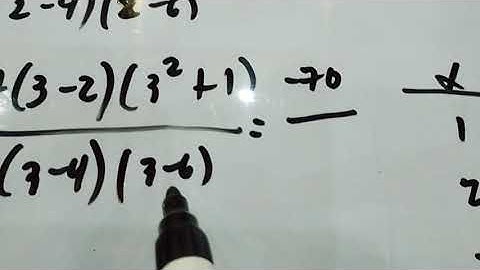 2-4)(2-6)
(3-2)(3²+1) = -70
(3-4)(3-6)
x
1
2